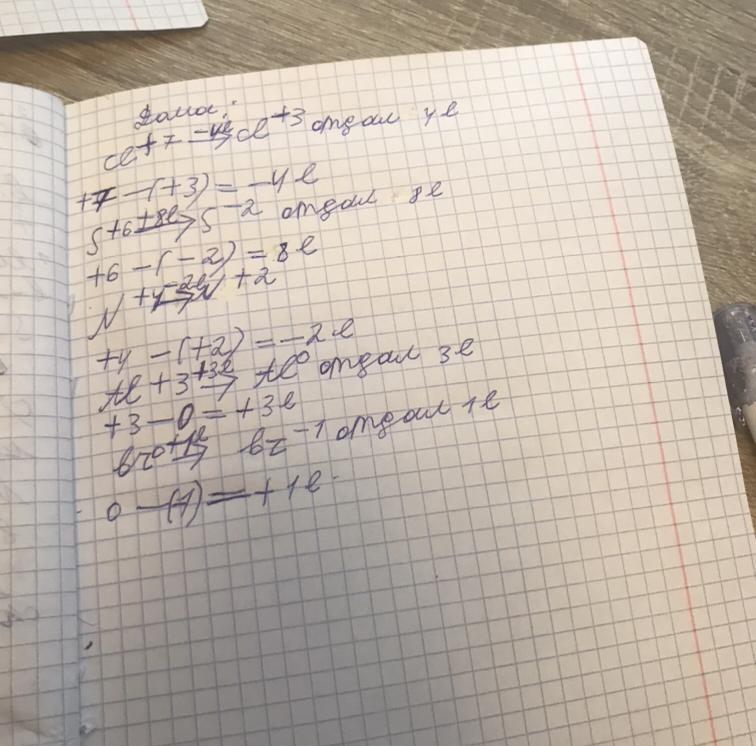 Дома:
Cl +7 -4e→ Cl +3 отдал 4e
+7 -(+3) = -4e
S +6 +8e→ S -2 отдал 8e
+6 -(-2) = 8e
N +4 -2e→ N +2
+4 -(+2) = -2e
Al +3 +3e→ Al 0 отдал 3e
+3 - 0 = +3e
Br 0 +1e→ Br -1 отдал 1e
0 -(1) = +1e